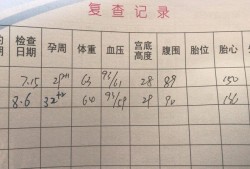 复查记录
检查日期 孕周 体重 血压 宫底高度 腹围 胎位 胎心
7.15 29 63 95/61 28 89 150
8.6 32 60 28 90